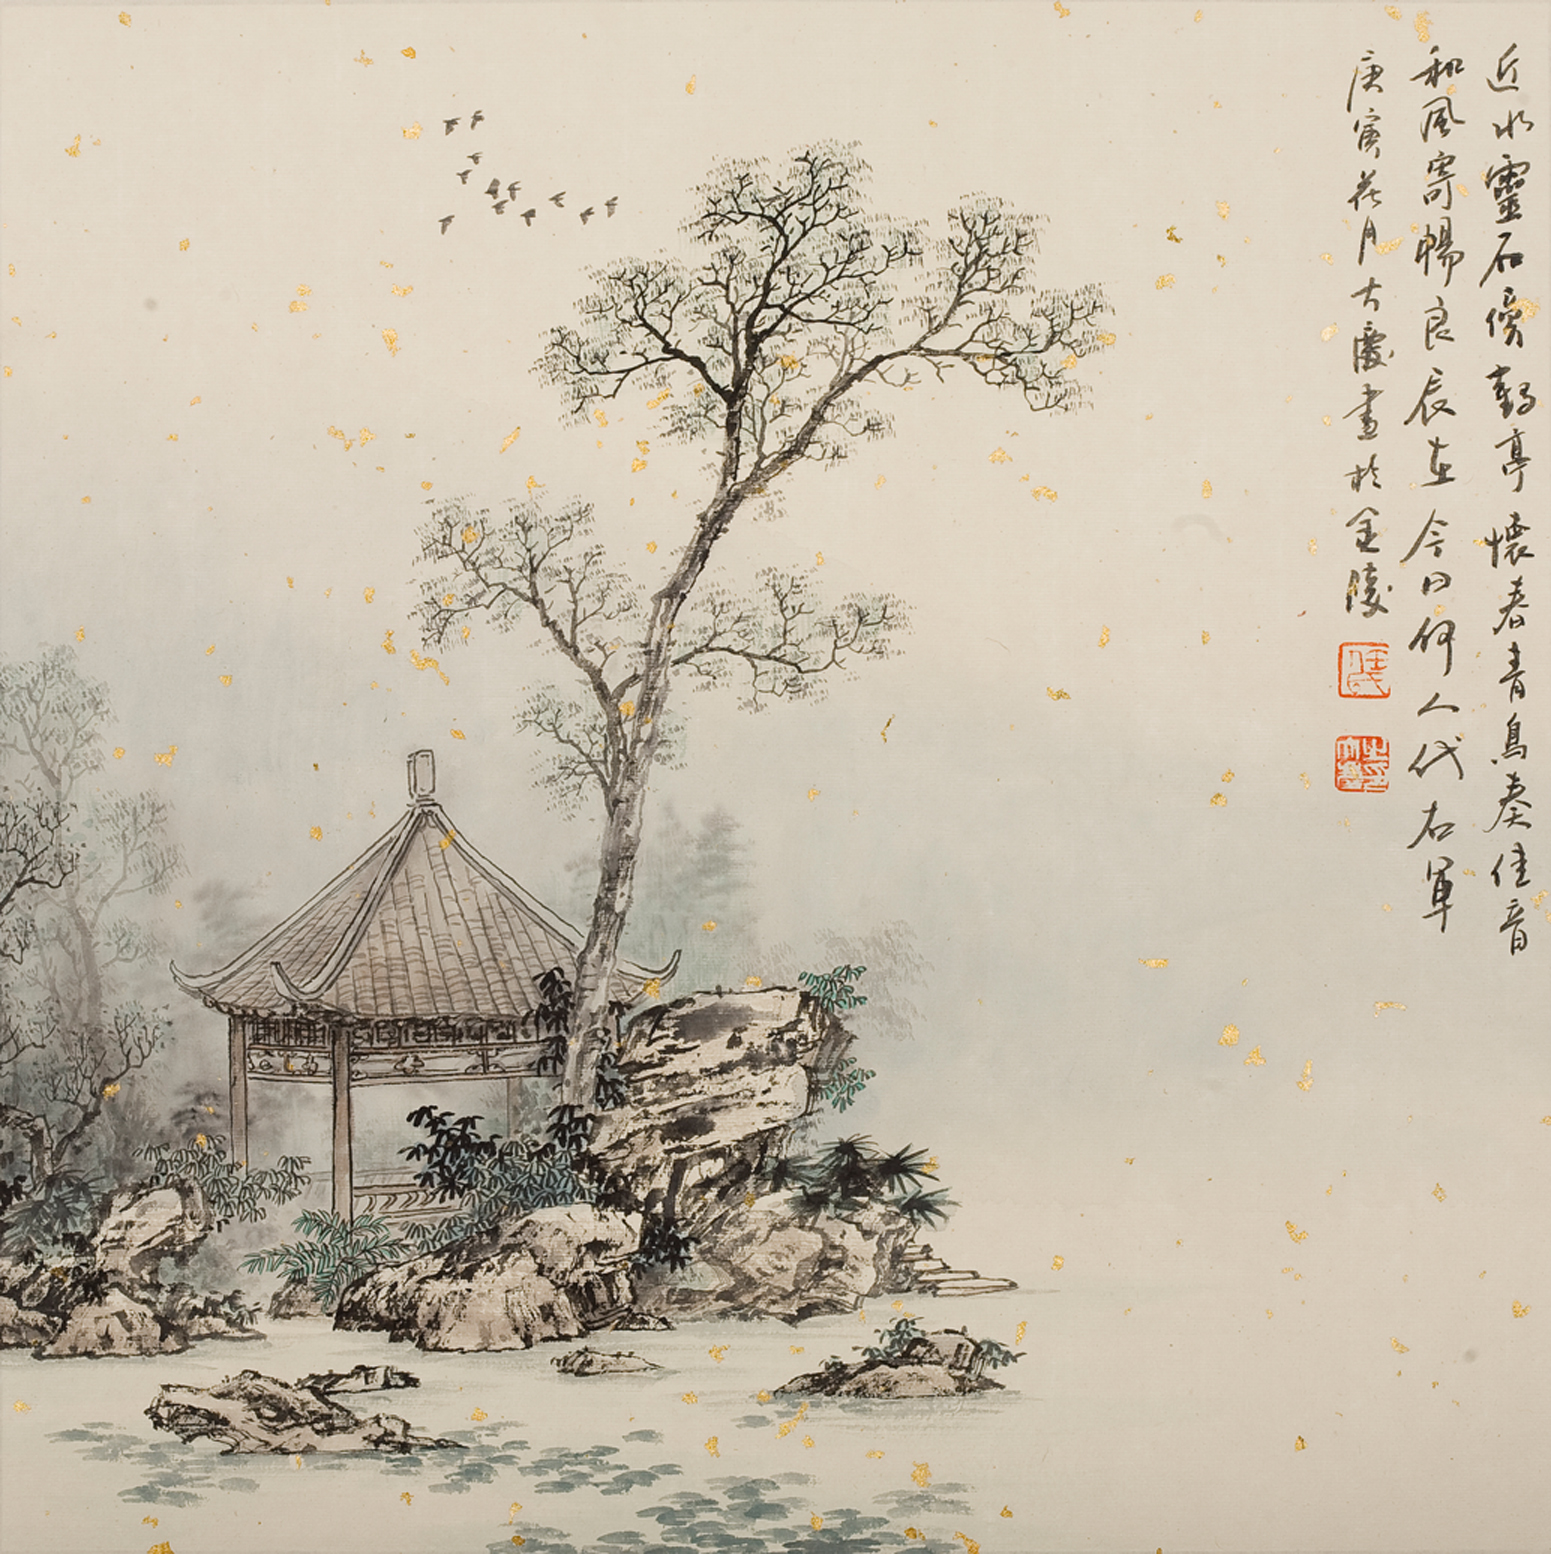 近水靈石傍鶴亭懷春青鳥奏佳音
和風寄暢良辰在今日何人代右軍
庚寅花月大慶畫於金陵